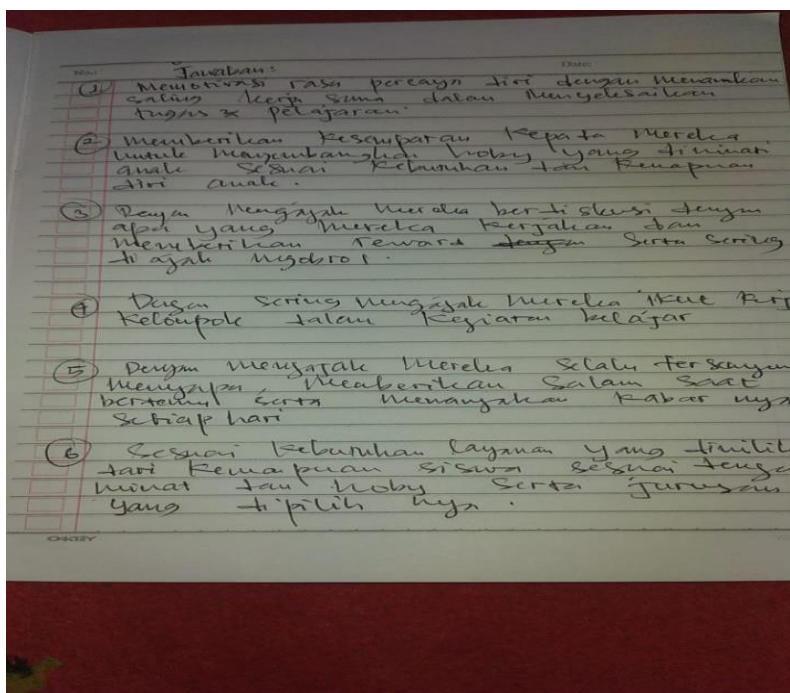 No.: Date:
Jawaban:
(1) Memotivasi rasa percaya diri dengan menanamkan
saling kerja sama dalam menyelesaikan
tugas x pelajaran.
(2) memberikan kesempatan kepada mereka
untuk mengembangkan hoby yang diminati
anak sesuai kebutuhan dan kemapuan
diri anak.
(3) Dengan mengajak mereka berdiskusi dengan
apa yang mereka kerjakan dan
memberikan reward dengan serta sering
di ajak ngobrol.
(4) Dengan sering mengajak mereka ikut
kelompok dalam kegiatan belajar
(5) Dengan mengajak mereka selalu tersenyum
menyapa, memberikan salam saat
bertemu serta menanyakan kabar nya
setiap hari
(6) Sesuai kebutuhan layanan yang dimilik
dari kemapuan siswa sesuai denga
minat dan hoby serta jurusan
yang dipilih nya.